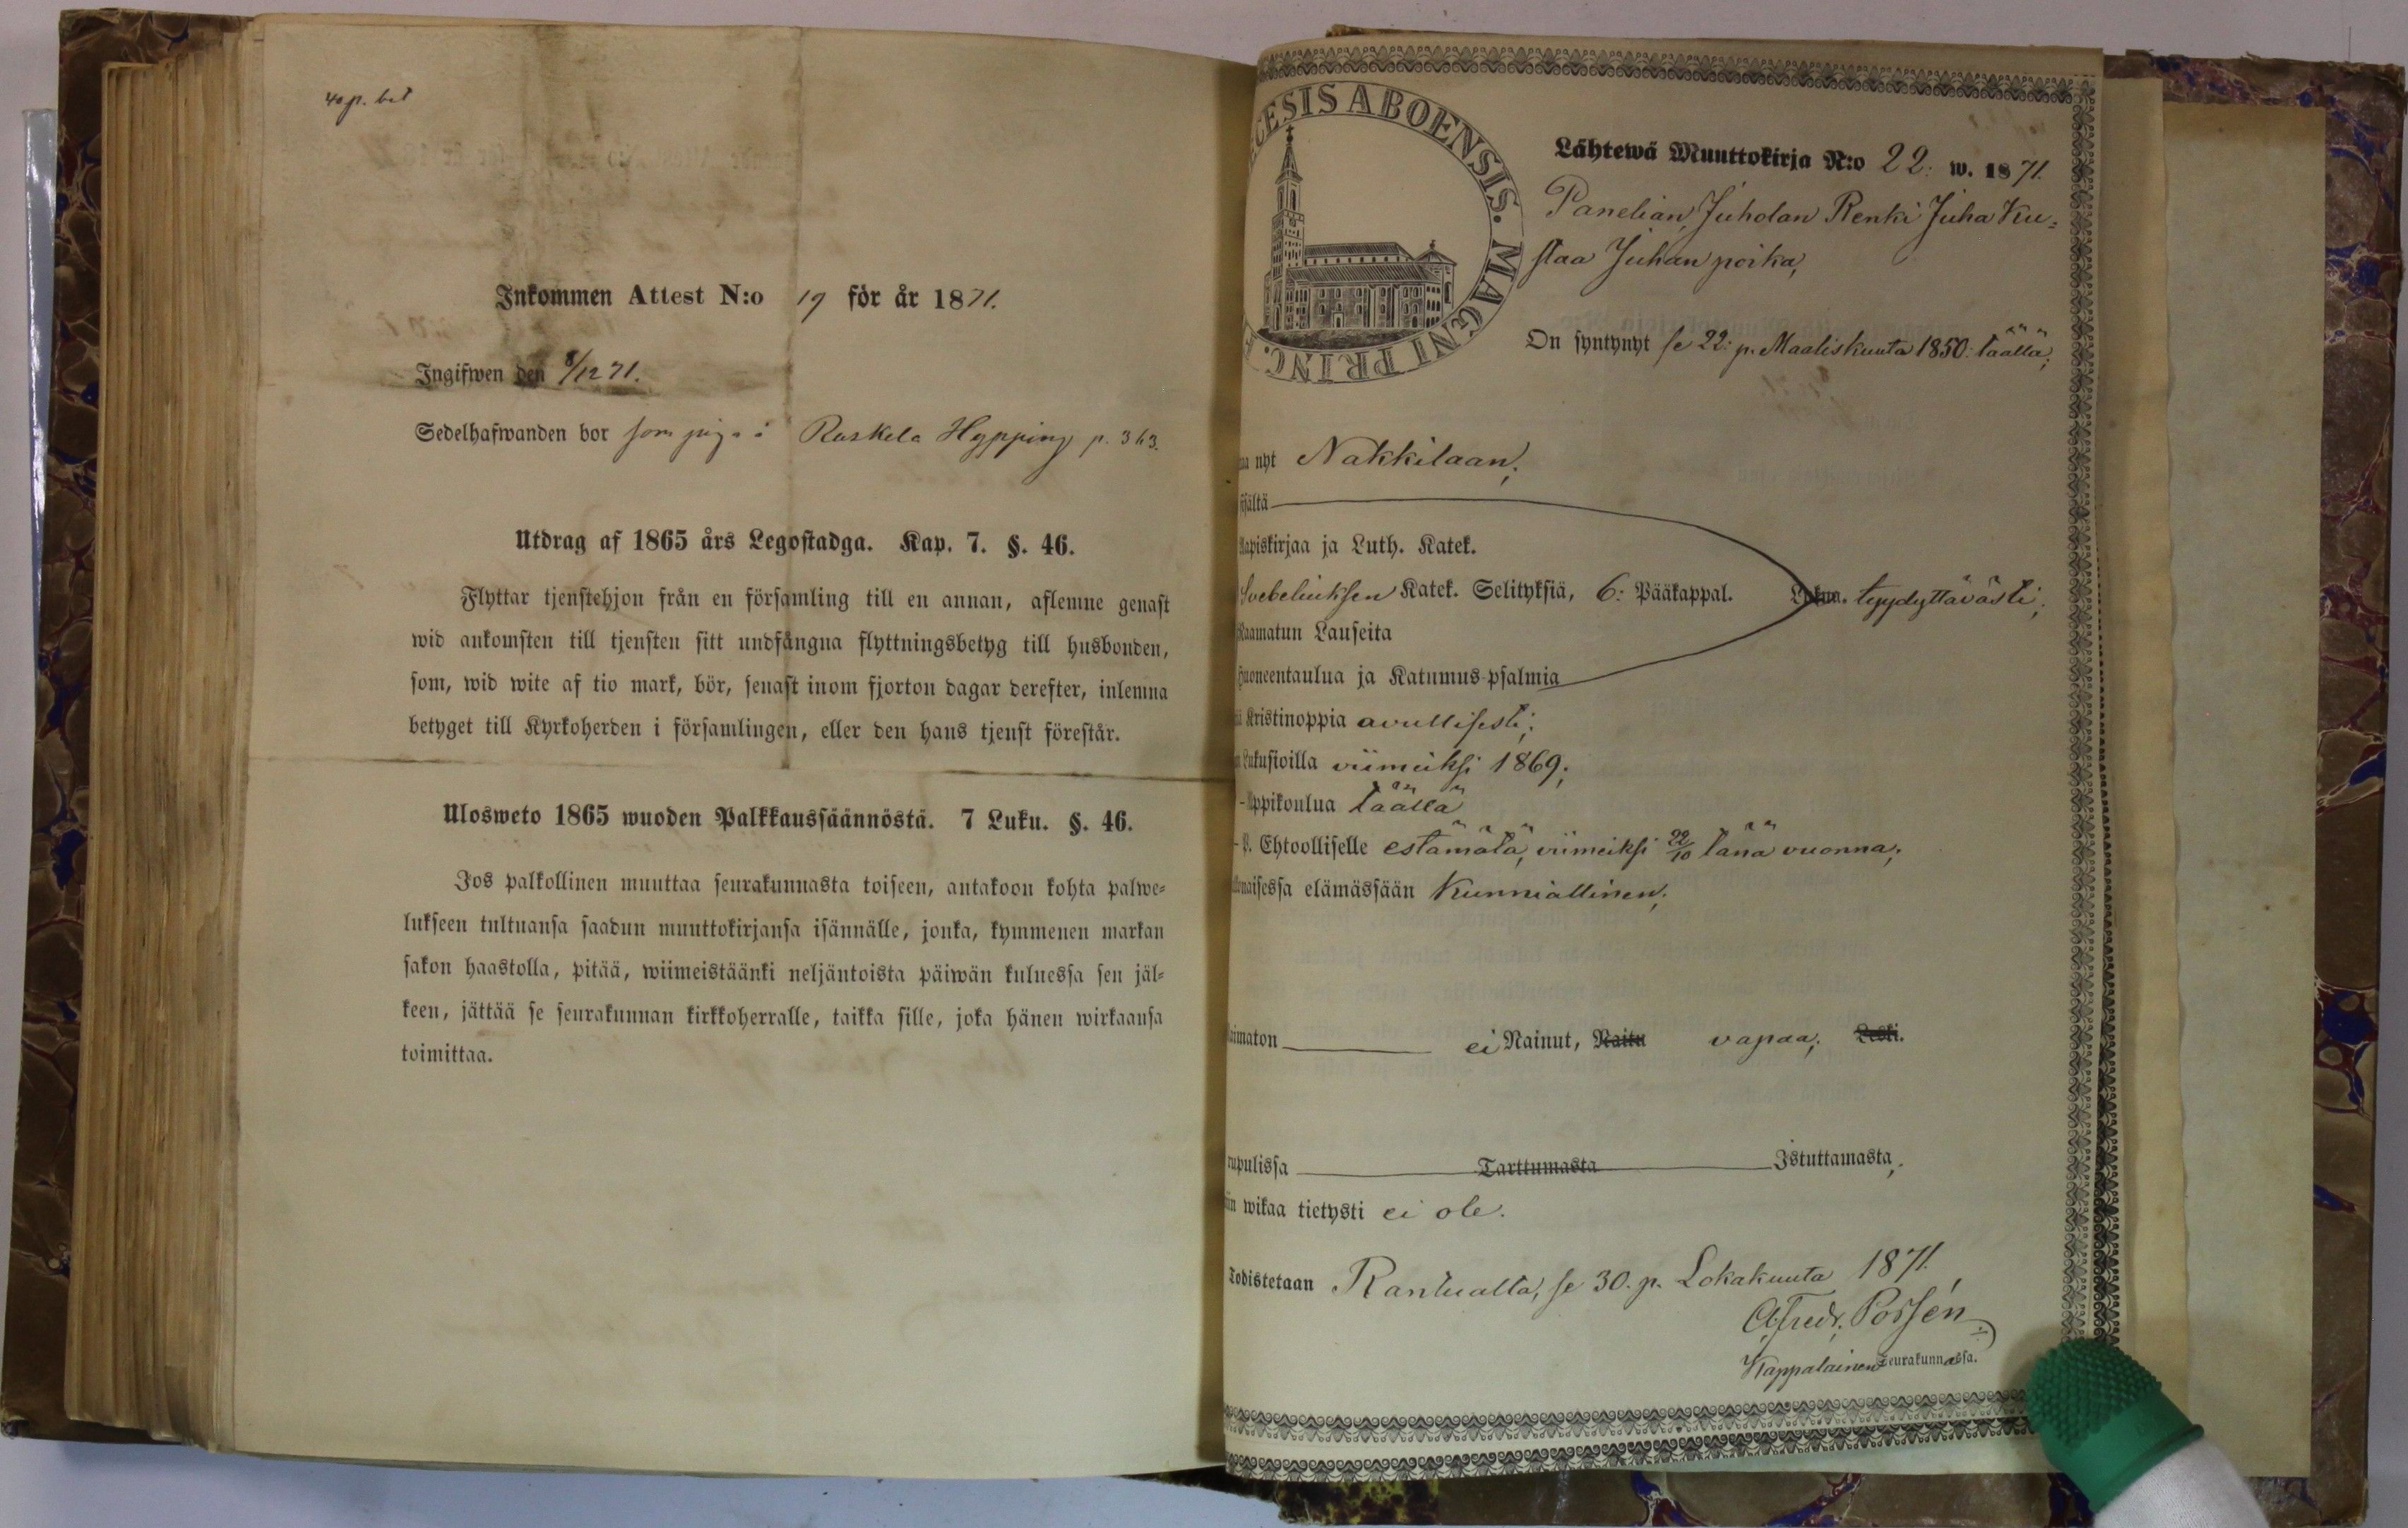 40 p. bet
Inkommen Attest N:o 19 för år 1871.
Ingifwen den 8/12 71.
Sedelhafwanden bor som piga i Ruskela Hypping p. 363.
Utdrag af 1865 års Legostadga. Kap. 7. §. 46.
Flyttar tjenstehjon från en församling till en annan, aflemne genast
wid ankomsten till tjensten sitt undfångna flyttningsbetyg till husbonden,
som, wid wite af tio mark, bör, senast inom fjorton dagar derefter, inlemna
betyget till Kyrkoherden i församlingen, eller den hans tjenst förestår.
Ulosweto 1865 wuoden Palkkaussäännöstä. 7 Luku. §. 46.
Jos palkollinen muuttaa seurakunnasta toiseen, antakoon kohta palwe=
lukseen tultuansa saadun muuttokirjansa isännälle, jonka, kymmenen markan
sakon haastolla, pitää, wiimeistäänki neljäntoista päiwän kuluessa sen jäl=
keen, jättää se seurakunnan kirkkoherralle, taikka sille, joka hänen wirkaansa
toimittaa.
CESIS ABOENSIS. MAGNI PRINC.
Lähtewä Muuttokirja N:o 22: w. 1871.
Panelian, Juholan Renki Juha Ku=
staa Juhan poika,
On syntynyt se 22: p. Maaliskuuta 1850: täällä;
aa nyt Nakkilaan;
sältä
Aapiskirjaa ja Luth. Katek.
Svebeliuksen Katek. Selityksiä, 6: Pääkappal. Lukua. tyydyttävästi;
Raamatun Lauseita
Huoneentaulua ja Katumus-psalmia
ä Kristinoppia avullisesti;
Lukusioilla viimeiksi 1869;
-ppikoulua täällä
- P. Ehtoolliselle estämätä, viimeiksi 22/10 tänä vuonna;
llonaisessa elämässään Kunniallinen;
aimaton ei Nainut, Naitu vapaa; Leski.
rupulissa Tarttumasta Istuttamasta,
in wikaa tietysti ei ole.
Todistetaan Rantualta, se 30. p. Lokakuuta 1871.
Alfredr. Possén
Kappalainen Seurakunnassa.